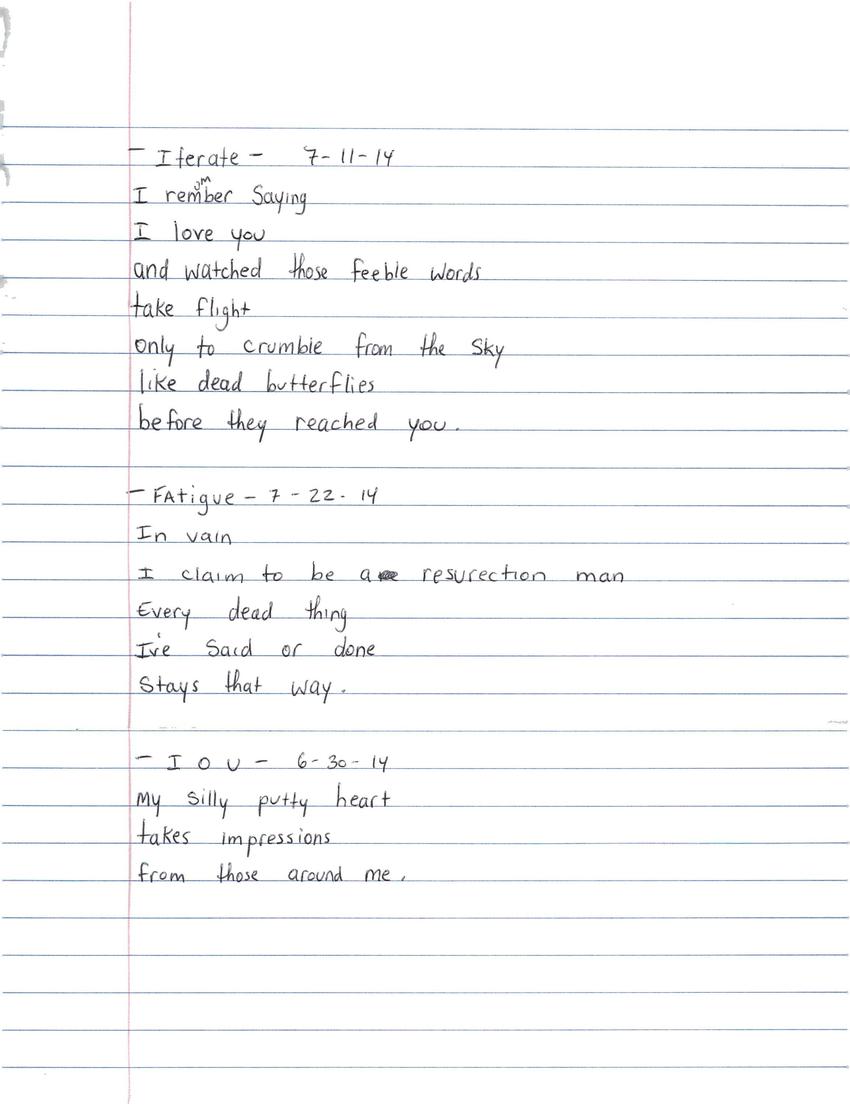 - Iterate - 7-11-14
I remember Saying
I love you
and watched those feeble words
take flight
only to crumble from the sky
like dead butterflies
before they reached you.
- FAtigue - 7-22-14
In vain
I claim to be a resurection man
Every dead thing
I've said or done
Stays that way.
- I O U - 6-30-14
My silly putty heart
takes impressions
from those around me.